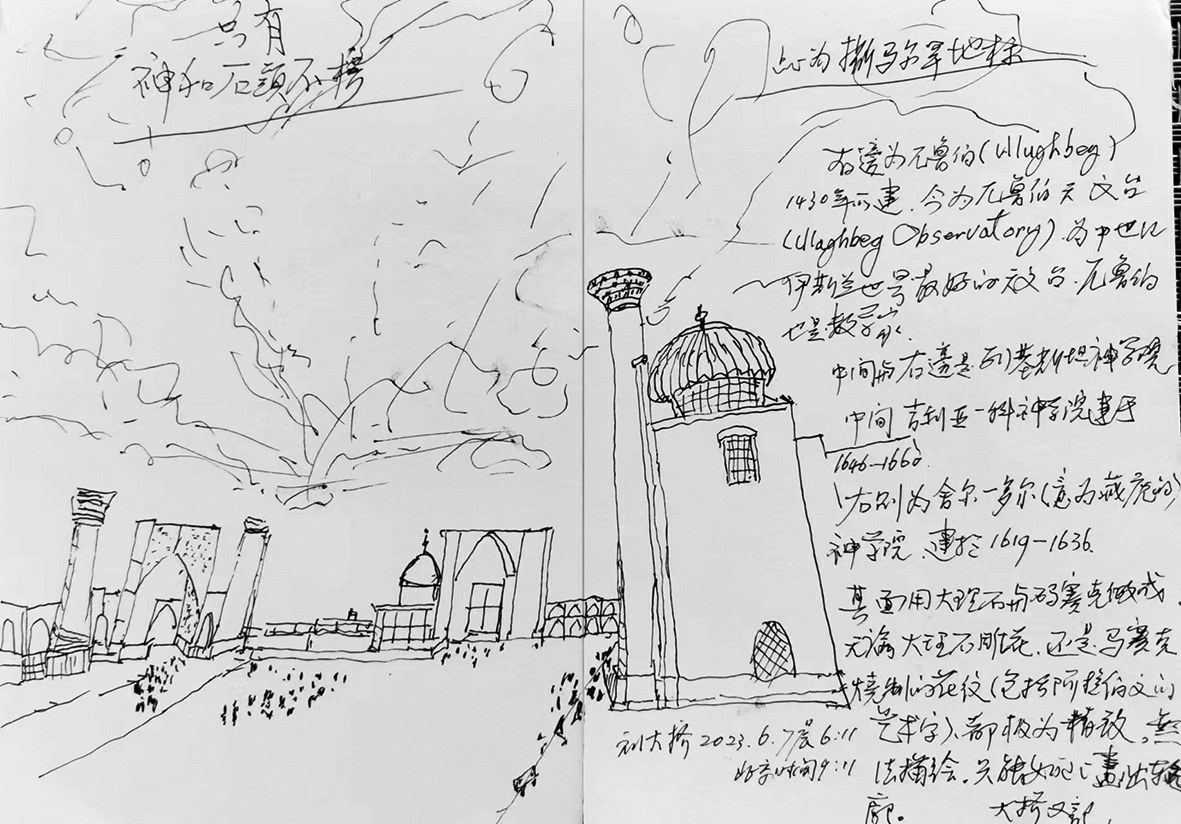 只有
神和石頭不搭
此为撒马尔罕地标
右邊为兀鲁伯(Ulughbeg)
1430年所建.今为兀鲁伯天文台
(Ulaghbeg Observatory).为中世纪
伊斯兰世界最好的天文台.兀鲁伯
也是数学家
中间与右邊是列基斯坦神学院
中间吉利亚-科神学院建于
1646-1660.
右则为舍尔-多尔(意为藏虎的)
神学院.建於1619-1636.
其面用大理石与码赛克做成.
无論大理石雕花.还是马赛克
燒制的花纹(包括阿拉伯文的
艺术字)、都极为精致.無
法描绘.只能如此畫出轮
廓。 大桥又記.
刘大桥2023.6.7晨6:11
北京时间9:11